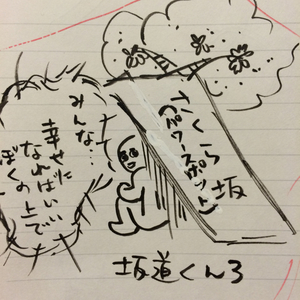 さくら坂
(パワースポット)
みんな…
幸せに
なればいい
ぼくの上で
坂道くん3